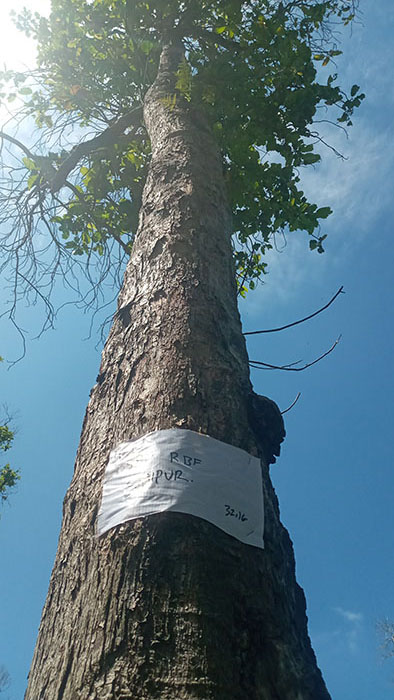 RBF
IPUR.
32.16